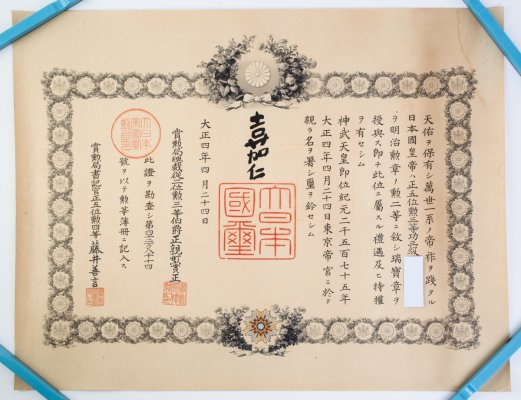 天佑ヲ保有シ萬世一系ノ帝祚ヲ踐タル
日本國皇帝ハ正五位勲三等功三級
ヲ明治勲章ノ勲二等ニ敘シ瑞寶章ヲ
授與ス即チ此位ニ屬スル禮遇及ヒ特權
ヲ有セシム
神武天皇即位紀元二千五百七十五年
大正四年四月二十四日東京帝宮ニ於テ
親ラ名ヲ署シ璽ヲ鈐セシム
嘉仁
大日本
國璽
大正四年四月二十四日
賞勲局總裁從二位勲三等伯爵正親町實正
此證ヲ勘査シ第四二八十四
號ヲ以テ勲等簿冊ニ記入ス
賞勲局書記官正五位勲四等藤井善言